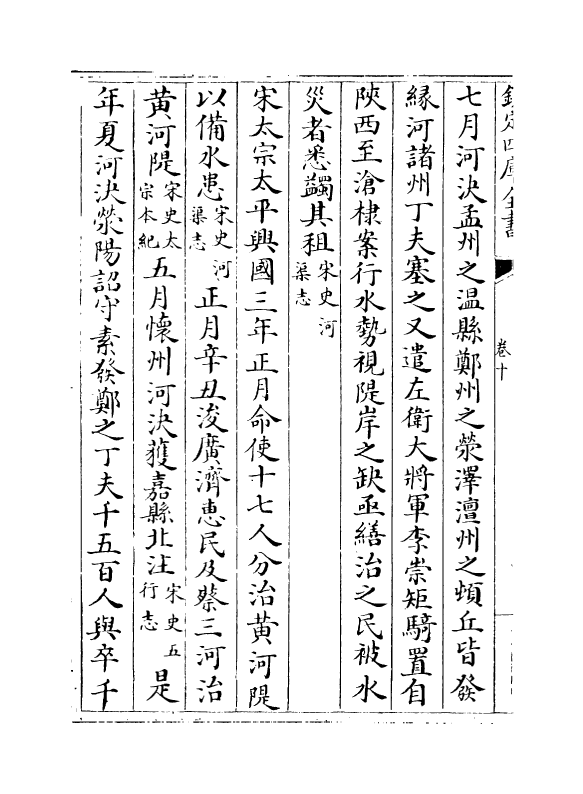 欽定四庫全書
卷十
七月河決孟州之温縣鄭州之滎澤澶州之頓丘皆發
緣河諸州丁夫塞之又遣左衛大將軍李崇矩騎置自
陜西至滄棣案行水勢視隄岸之缺亟繕治之民被水
災者悉蠲其租宋史河渠志
宋太宗太平興國三年正月命使十七人分治黄河隄
以備水患宋史河渠志正月辛丑浚廣濟惠民及蔡三河治
黄河隄宋史太宗本紀五月懷州河決獲嘉縣北注宋史五行志是
年夏河決滎陽詔守素發鄭之丁夫千五百人與卒千